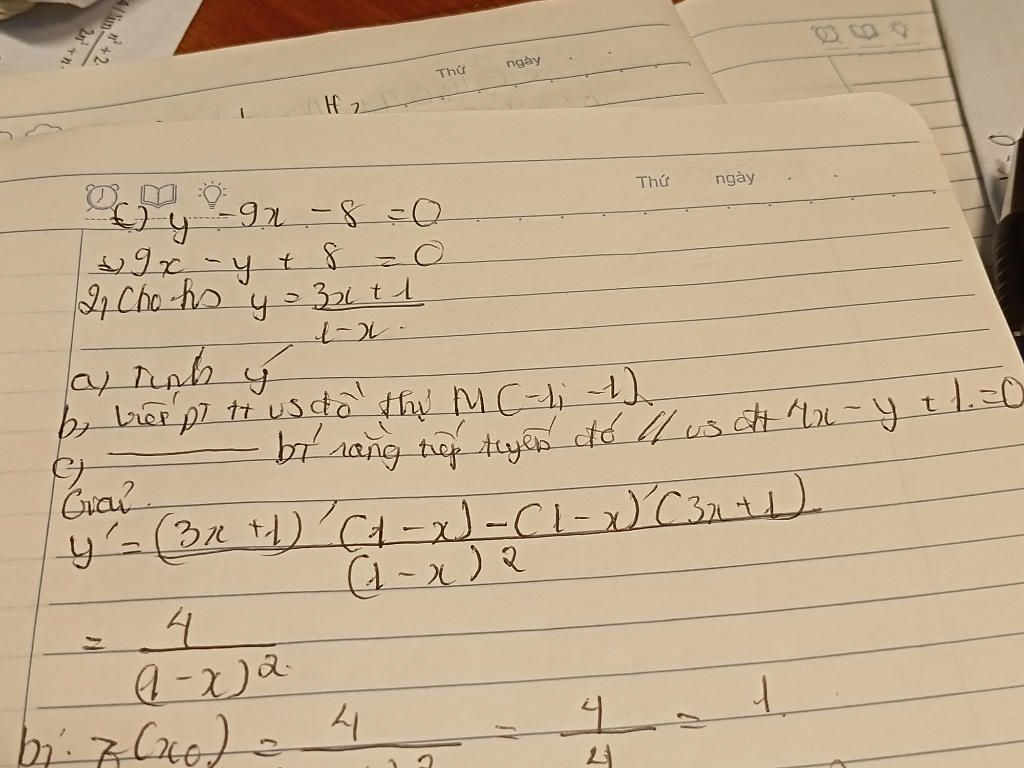 4) lim n² + 2 / 2n² + n
Thứ ngày
Thứ ngày
(=) y - 9x - 8 = 0
(=) 9x - y + 8 = 0
2, Cho hs y = 3x + 1 / 1 - x.
a) Tính y'
b, Viết pt tt vs đồ thị M (-1; -1)
c) ——— bt rằng tiếp tuyến đó // vs đt 4x - y + 1 = 0
Giải.
y' = (3x + 1)' (1 - x) - (1 - x)' (3x + 1) / (1 - x)²
= 4 / (1 - x)².
b, : (x₀) = 4 / ² = 4 / 4 = 1